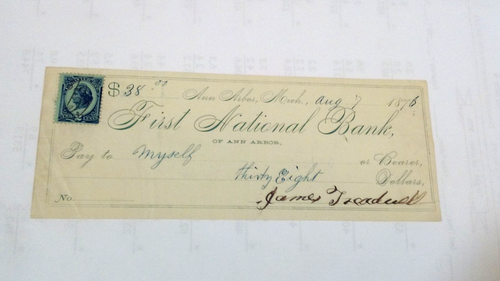 $38.00 Ann Arbor, Mich., Aug 7 1876
First National Bank,
OF ANN ARBOR,
Pay to Myself or Bearer,
Thirty Eight Dollars,
No James Treadwell
2 CENTS